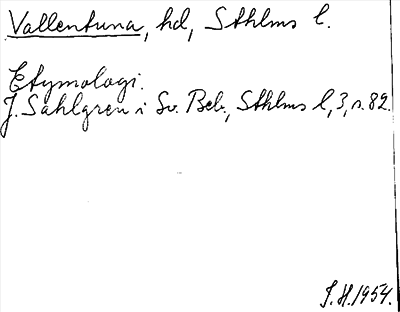 Vallentuna, hd, Sthlms l.
Etymologi.
J. Sahlgren i Sv. Beb., Sthlms l, 3, s. 82.
J. H. 1954.